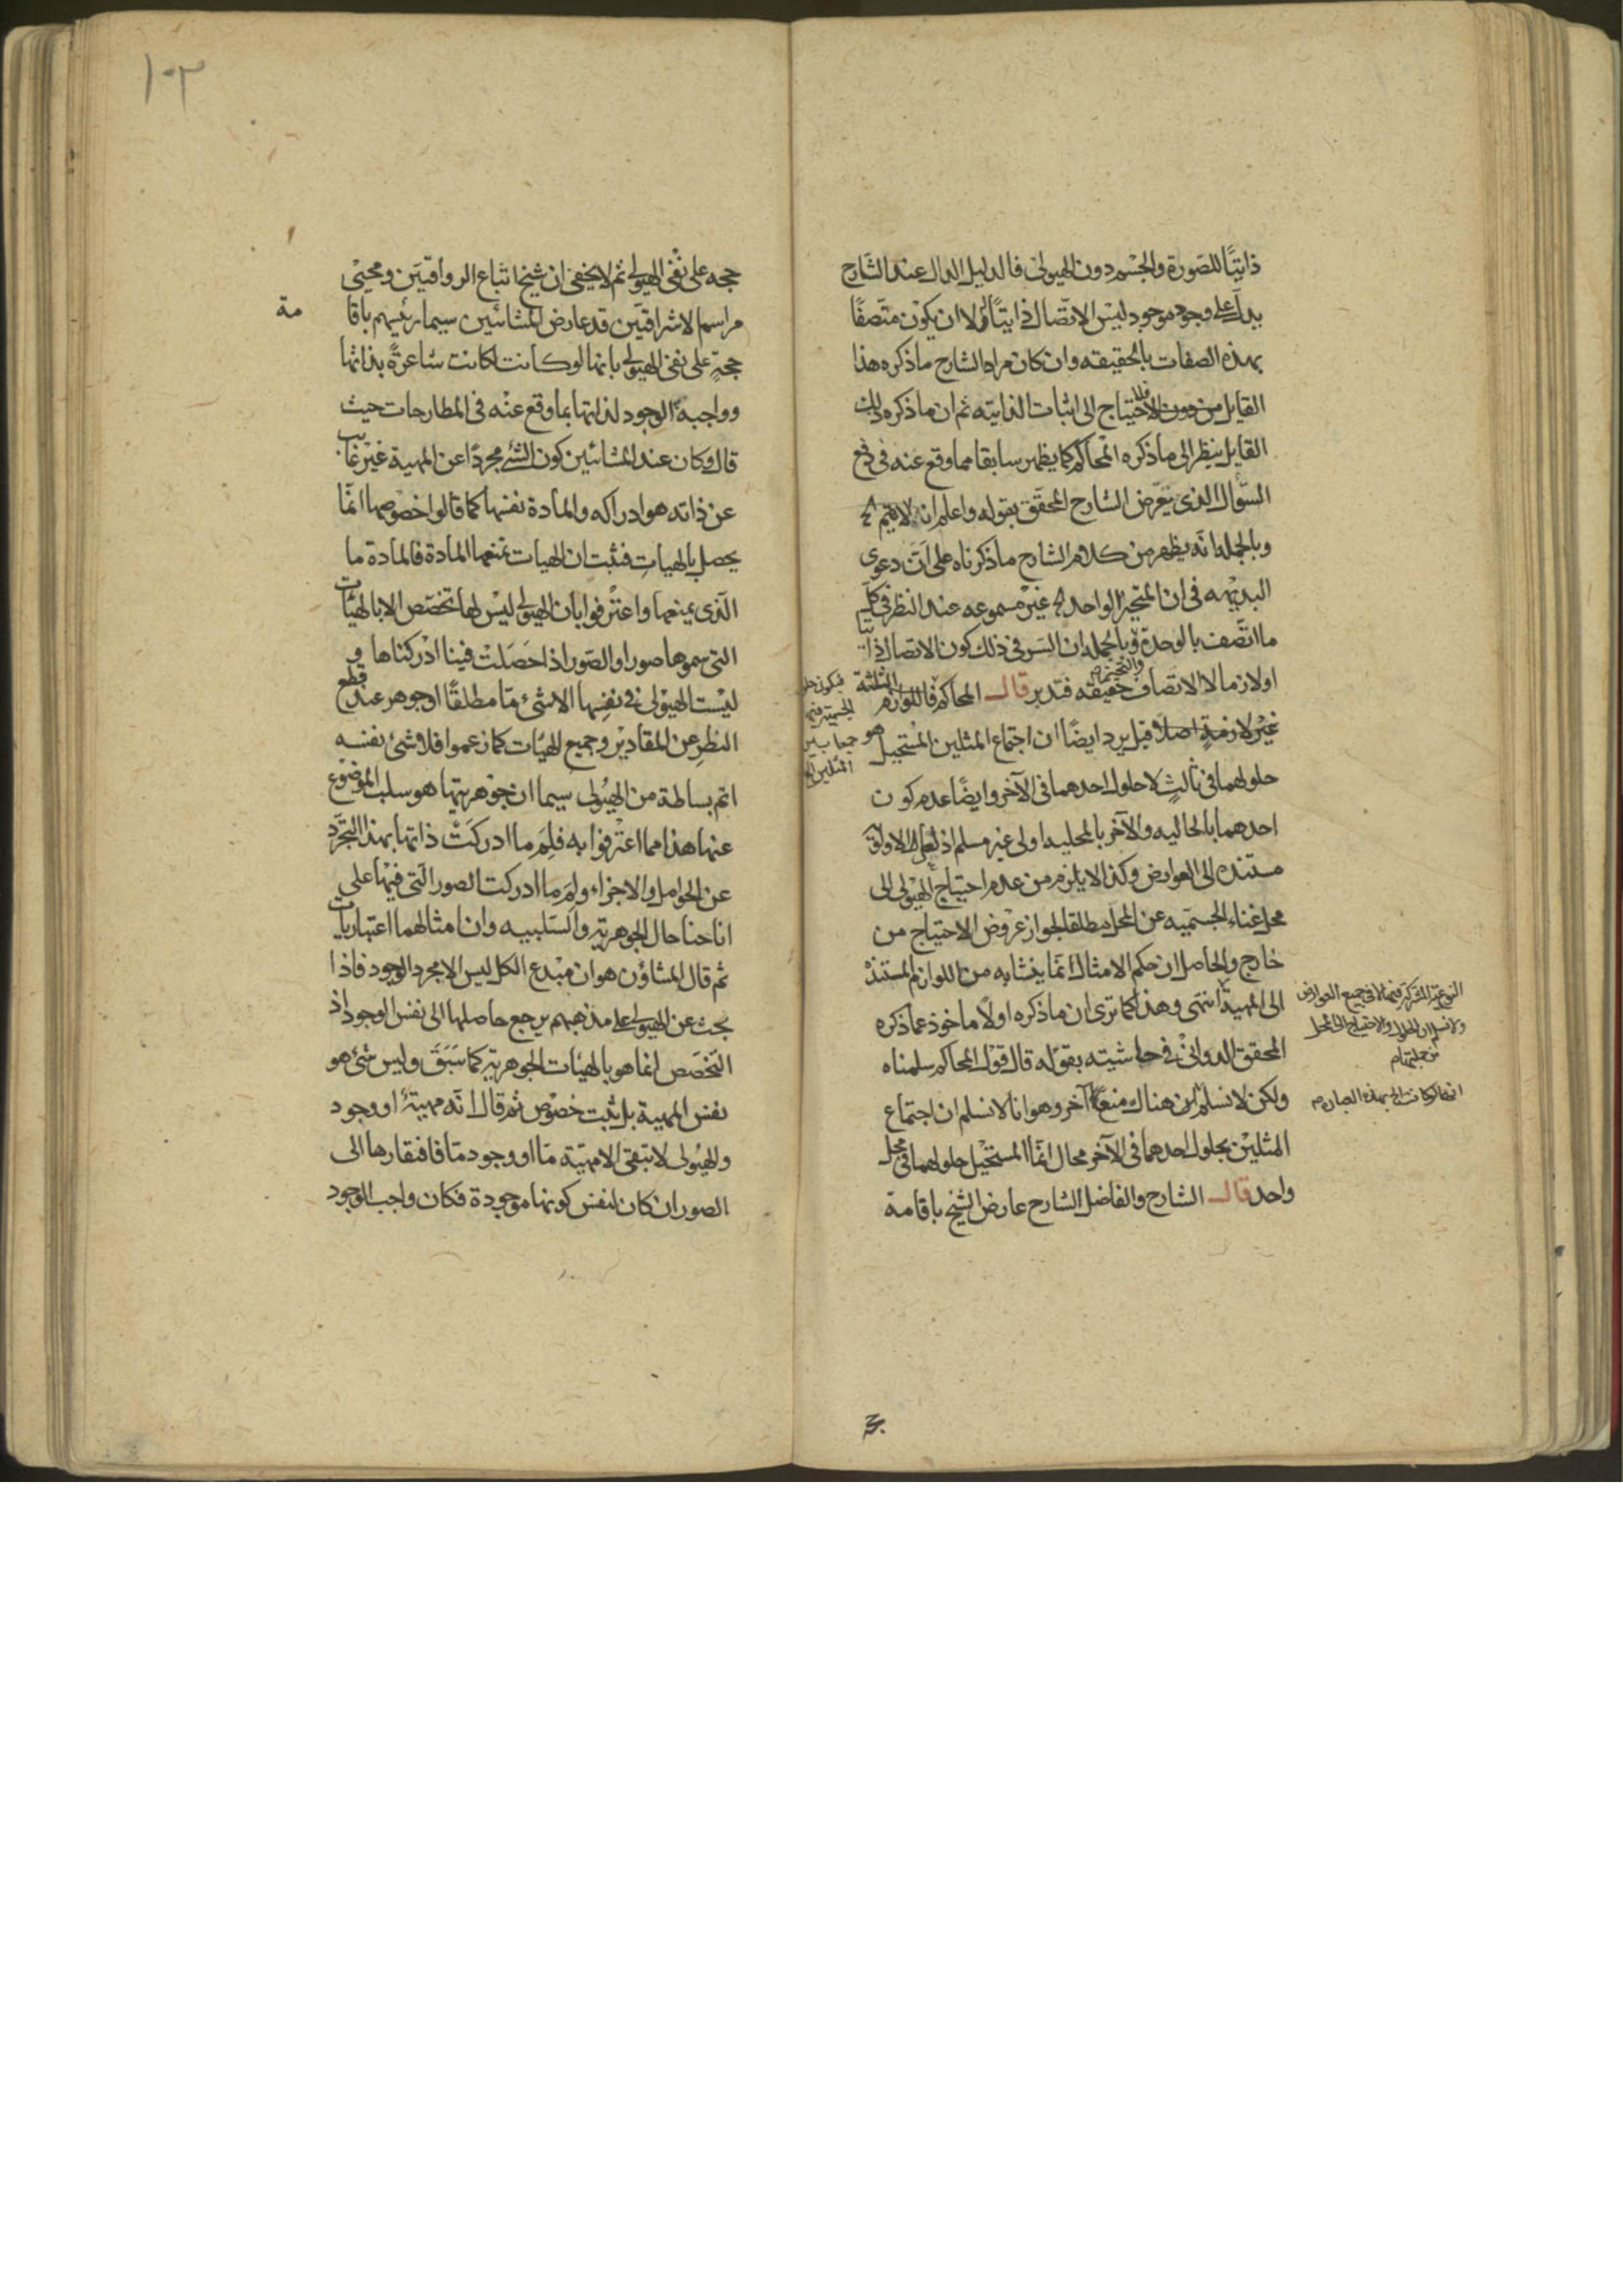 ذاتيًا للصورة والجسم دون الهيولى فالدليل الدال عند الشارح
يدل على وجود موجود ليس الاتصال ذاتيًا له لا ان يكون متصفًا
بهذه الصفات بالحقيقه وان كان مراد الشارح ما ذكره هذا
القايل من دون الاحتياج الى اثبات الذاتيه ثم ان ما ذكره ذلك
القايل ينظر الى ما ذكره المحاكم كما يظهر سابقا مما وقع عنه فى دفع
السؤال الذى تعرض الشارح المحقق بقوله واعلم انه لايتم الخ
وبالجمله انه يظهر من كلام الشارح ما ذكرناه على ان دعوى
البديهه فى ان المتحيز الواحد الخ غير مسموعه عند النظر فى كلام
ما اتصف بالوحدة وبالجمله ان السر فى ذلك كون الاتصال ذاتيا
اولازما لا الاتصاف حقيقه فتدبر قال المحاكم فاللوازم الثلثة
والتحيز
غير لازمة اصلا قيل يرد ايضًا ان اجتماع المثلين المستحيل هو
فيكون حلول
الجسمية فيها
جمعا بين
المثلين الخ
حلولهما فى ثالث لا حلول احدهما فى الآخر وايضًا عدم كون
احدهما بالحاليه والآخر بالمحليه اولى غير مسلم اذ لعل الاولويه
مستنده الى العوارض وكذا لا يلزم من عدم احتياج الهيولى الى
محل غناء الجسميه عن المحل مطلقا لجواز عروض الاحتياج من
خارج والحاصل ان حكم الامثال انما يتشابه من اللوازم المستندة
الى المهية انتهى وهذا كما ترى ان ما ذكره اولًا ماخوذ عما ذكره
المحقق الدوانى فى حاشيته بقوله قال قول المحاكم سلمناه
ولكن لانسلم لان هناك منعًا آخر وهو انا لانسلم ان اجتماع
المثلين بحلول احدهما فى الآخر محال انما المستحيل حلولهما فى محل
واحد قال الشارح والفاضل الشارح عارض الشيخ باقامة
النوعية المشتركة فيها لا فى جميع العوارض
ولا نسلم ان الحلول والاحتياج الى المحل
من جملتها م
١٠٣
حجه على نفى الهيولى ثم لايخفى ان شيخ اتباع الرواقيين ومحيى
مراسم الاشراقيين قد عارض المشائين سيما رئيسهم باقا
مة
حجةٍ على نفى الهيولى بانها لو كانت لكانت شاعرةً بذاتها
وواجبة الوجود لذاتها بما وقع عنه فى المطارحات حيث
قال وكان عند المشائين كون الشئ مجردًا عن المهية غير غايب
عن ذاته هو ادراكه والمادة نفسها كما قالوا خصوصها انما
يحصل بالهيات فثبت ان الهيات تمنعها المادة فالمادة ما
الذى يمنعها واعترفوا بان الهيولى ليس لها تخصص الا بالهيئات
التى سموها صورا والصور اذا حصلت فينا ادركناها و
ليست الهيولى فى نفسها الا شئ ما مطلقًا او جوهر عند قطع
النظر عن المقادير وجميع الهيئات كما زعموا فلا شئ بنفسه
اتم بساطة من الهيولى سيما ان جوهريتها هو سلب الموضوع
عنها هذا مما اعترفوا به فلم ما ادركت ذاتها بهذا التجرد
عن الحوامل والاجزاء ولم ما ادركت الصور التى فيها على
انا حنا حال الجوهرية والسلبيه وان امثالهما اعتباريات
ثم قال المشاؤن هو ان مبدع الكل ليس الا مجرد الوجود فاذا
بحث عن الهيولى على مذهبهم يرجع حاصلها الى نفس الوجود اذ
التخصص انما هو بالهيئات الجوهرية كما سبق وليس شئ هو
نفس المهية بل يثبت خصوص ثم قال انه مهيةٌ او وجود
والهيولى لاتبقى الا مهية ما او وجود ما فافتقارها الى
الصور ان كان لنفس كونها موجودة فكان واجب الوجود